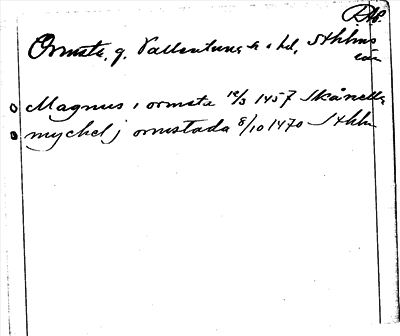 RAp.
Ormsta, g. Vallentuna s o hd, Sthlms
län
Magnus i ormsta 12/3 1457 Skånella
mychel j ormstada 8/10 1470 Sthlm